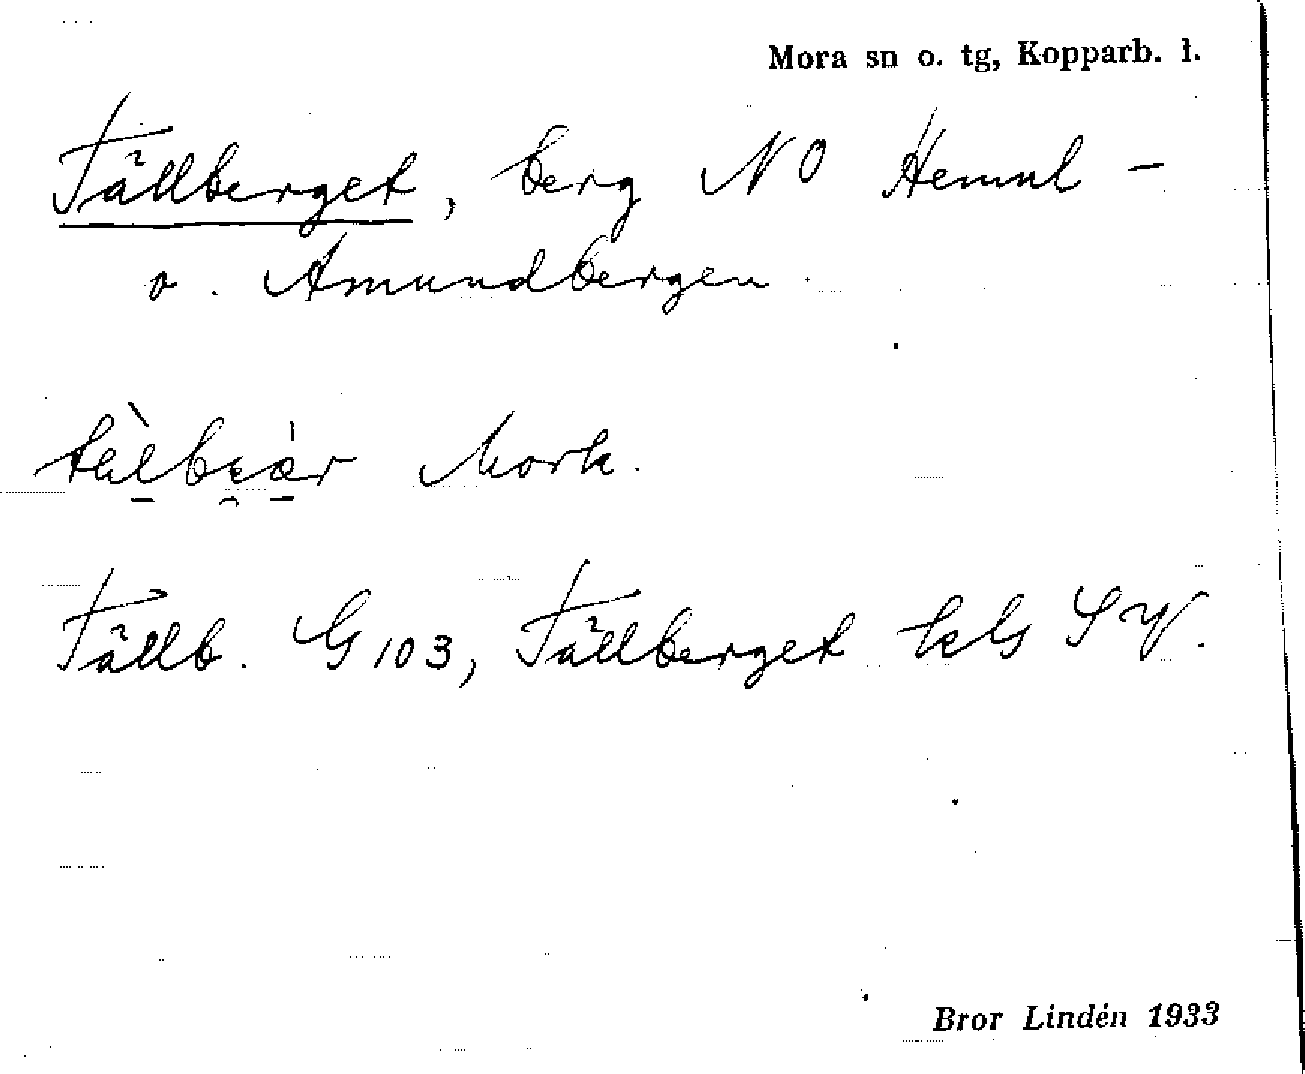 Mora sn o. tg, Kopparb. l.
Tällberget, berg NO Hemul-
o. Amundbergen.
Mork.
Tällb. G 103, Tällberget SV.
Bror Lindén 1933